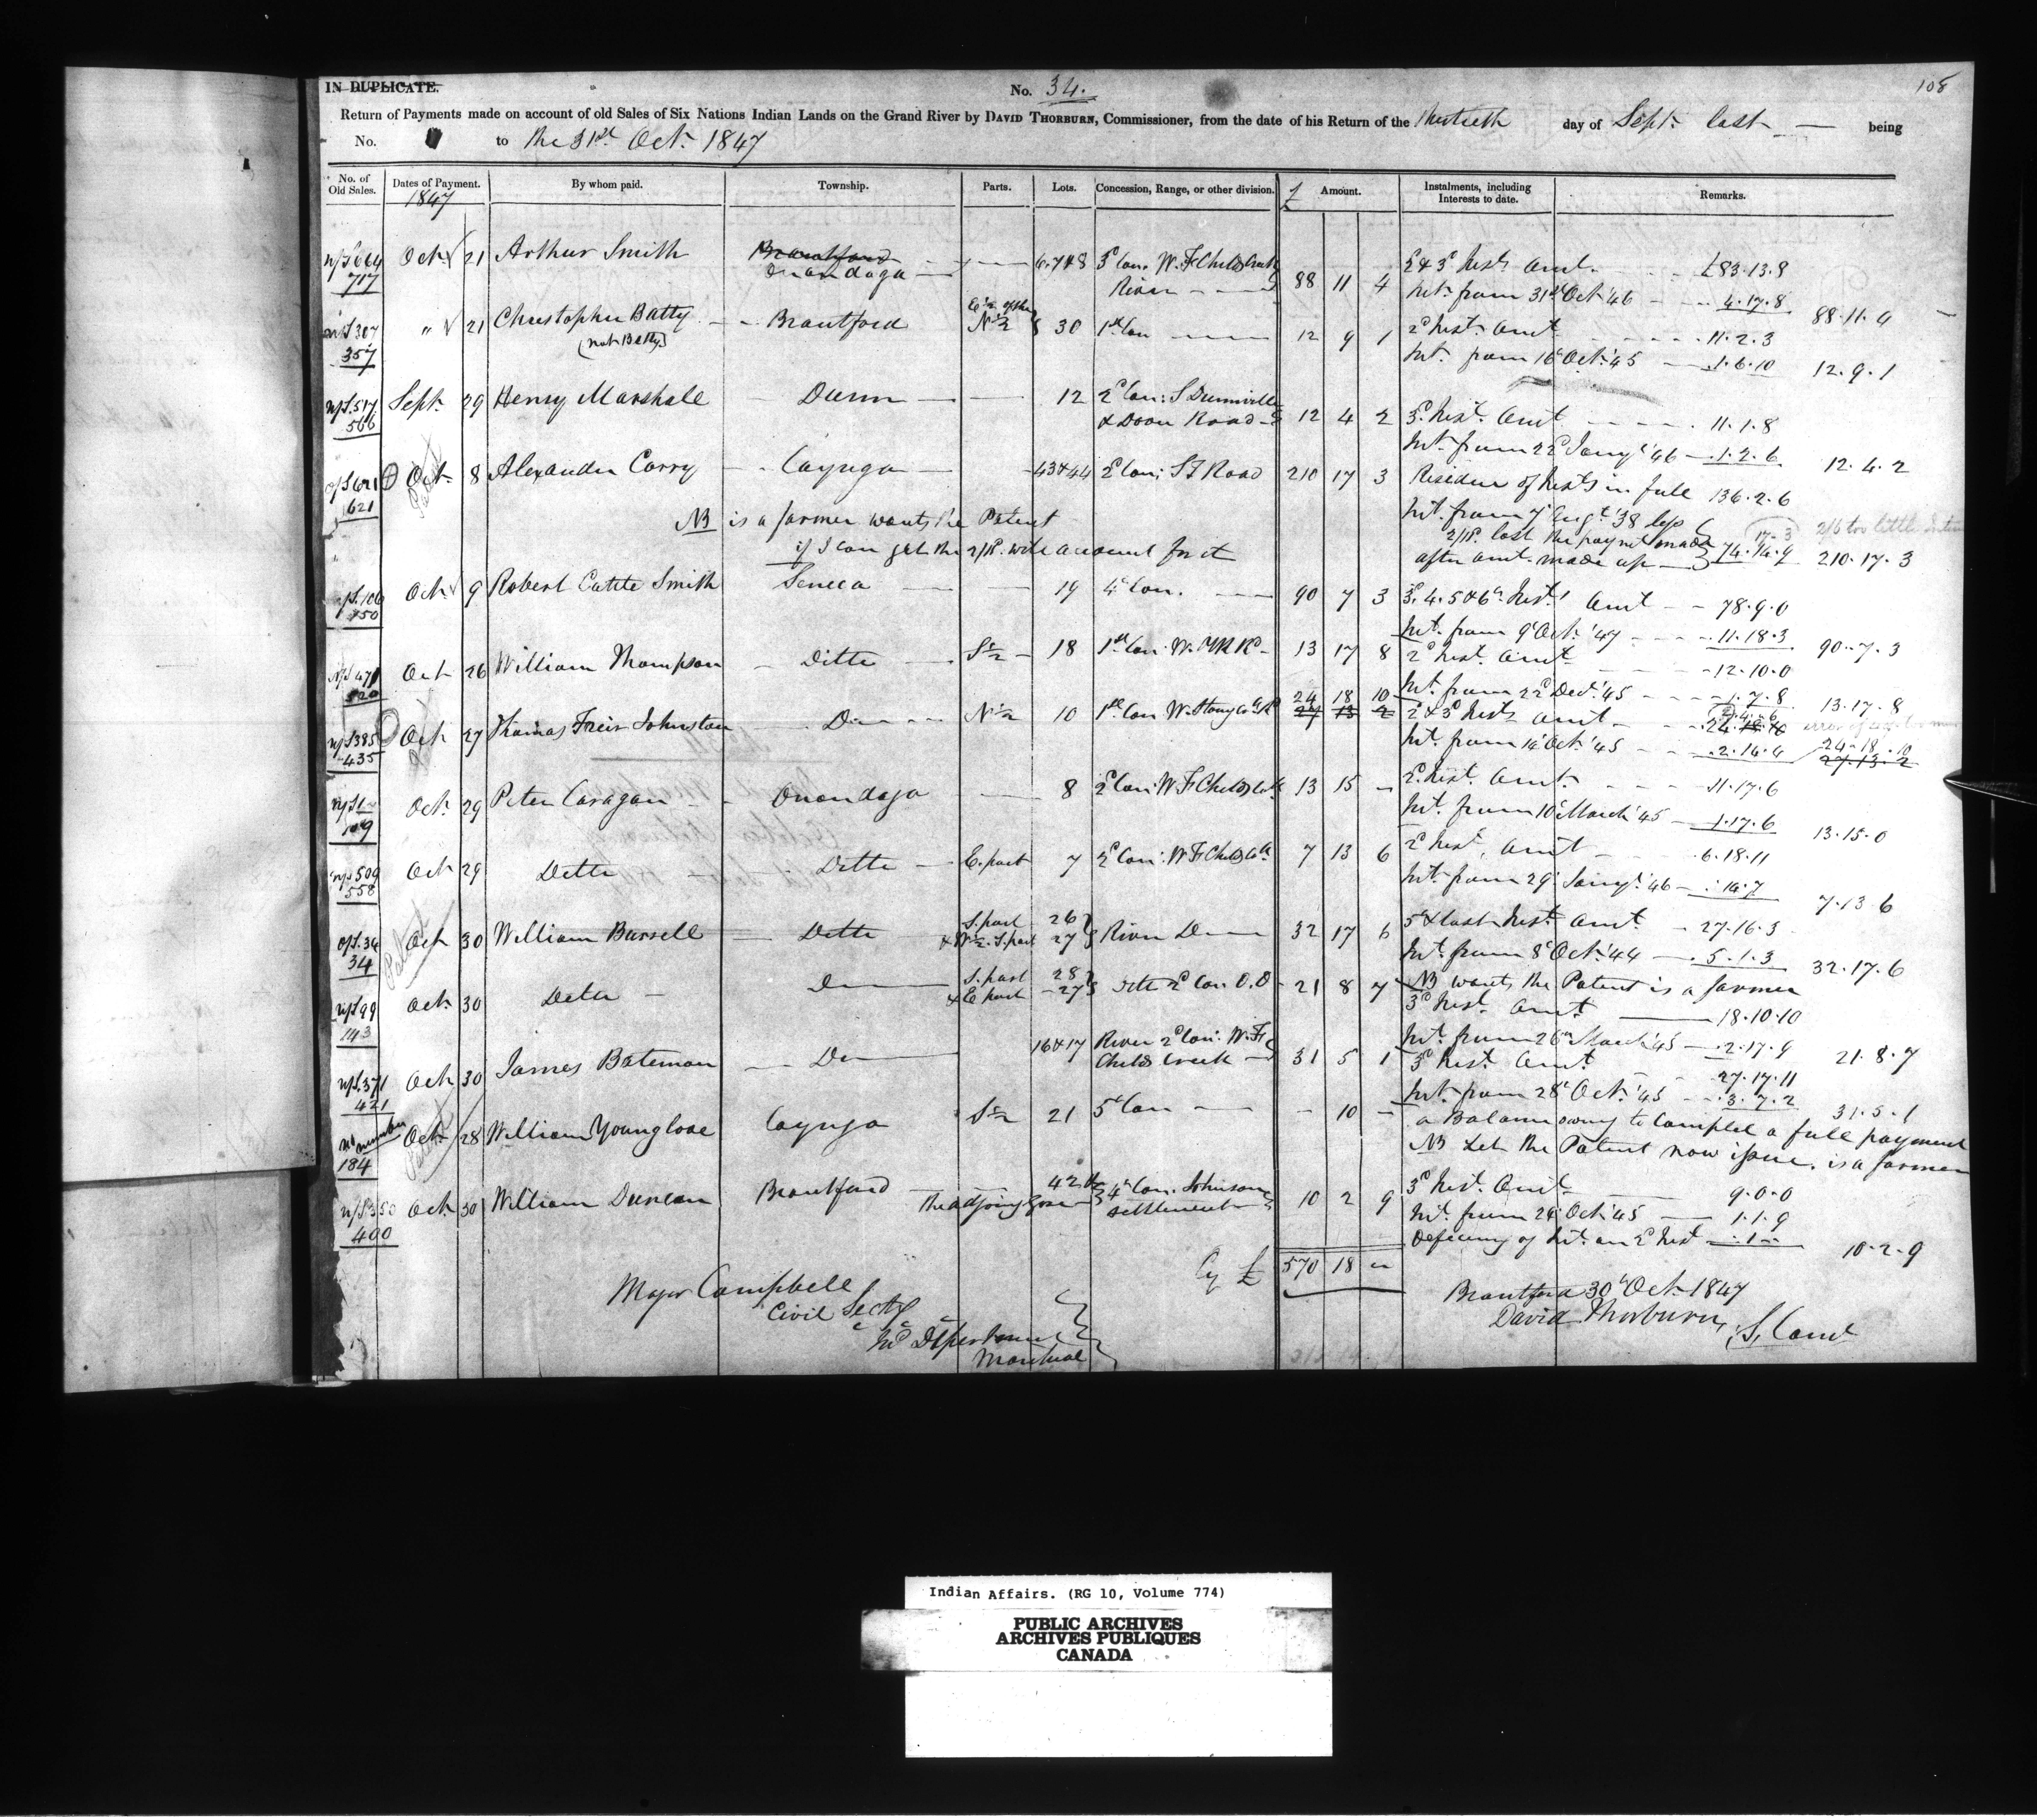 IN DUPLICATE.
No. 34.
108
Return of Payments made on account of old Sales of Six Nations Indian Lands on the Grand River by DAVID THORBURN, Commissioner, from the date of his Return of the thirtieth day of Sept. last being
No. to the 31st. Oct. 1847
No. of Old Sales. Dates of Payment. By whom paid. Township. Parts. Lots. Concession, Range, or other division. £ Amount. Instalments, including Interests to date. Remarks.
1847
n/S 664 Oct. 21 Arthur Smith Brantford 6.7&8 3d Con. W. F Childs Creek 2 & 3d Inst. Amt. £83.13.8
717 Onondaga River 88 11 4 Int. from 31st Oct. 46 4.17.8 88.11.4
n/S 307 " 21 Christopher Batty Brantford E ½ of the N ½ 30 1st Con 12 9 1 2d Inst. Amt 11.2.3
357 (not Betty) Int. from 16 Oct. 45 1.6.10 12.9.1
n/S. 517 Sept. 29 Henry Marshall Dunn 12 2d Con: S Dunnville
566 & Dover Road 12 4 2 3d. Inst. Amt 11.1.8
Int. from 22d Jany. 46 1.2.6 12.4.2
o/S 621 Oct. 8 Alexander Corry Cayuga 43&44 2d Con; S T Road 210 17 3 Residue of Insts in full 136.2.6
621
NB is a farmer wants the Patent Int. from 7 Augt. 38 less 17-3 2/6 too little
if I can get the 2/1d. will account for it 2/1d. lost the paymt made 74.14.9 210.17.3
after amt. made up
n/S. 106 Oct. 9 Robert Cattle Smith Seneca 19 4 Con. 90 7 3 3d. 4. 5 & 6th. Inst. Amt 78.9.0
150 Int. from 9 Oct. 47 11.18.3 90.7.3
n/S 471 Oct 26 William Thompson Ditto S ½ 18 1st Con. W. P R Rd 13 17 8 2d Inst. Amt 12.10.0
520 Int. from 22d Dec. 45 1.7.8 13.17.8
n/S 385 Oct 27 Thomas Freir Johnston Do N ½ 10 1st Con W. Stony Ck Rd 24 18 10 2 & 3d Insts Amt 24.18.10
435 27 13 2 Int. from 14 Oct. 45 2.14.4 24-18.10
27.13.2
n/S 1 Oct. 29 Peter Caragan Onondaga 8 2d Con: W. F Childs Ck 13 15 - 2d. Inst. Amt. 11.17.6
109 Int. from 10 March 45 1.17.6 13.15.0
n/S 509 Oct 29 Ditto Ditto E. part 7 2d Con: W F Childs Ck 7 13 6 2d Inst. Amt 6.18.11
558 Int. from 29 Jany. 46 .14.7 7.13.6
o/S. 34 Oct 30 William Bussell Ditto S. part 26 5 & last Inst. Amt 27.16.3
34 & W ½ S. part 27 River Do 32 17 6 Int. from 8 Oct. 44 5.1.3 32.17.6
NB wants the Patent is a farmer
n/S 99 Oct. 30 Ditto Do S. part 28 3d Inst. Amt. 18.10.10
143 & E part 27 2d Con 21 8 7 Int. from 26 March 45 2.17.9 21.8.7
n/S. 371 Oct 30 James Bateman Do 16&17 River 2d Con: W. F 3d Inst. Amt 27.17.11
421 Childs Creek 31 5 1 Int. from 28 Oct. 45 3.7.2 31.5.1
no number Oct 28 William Younglove Cayuga S ½ 21 5 Con - 10 - a Balance owing to Complete a full payment
184 NB Let the Patent now issue. is a farmer
n/S 350 Oct. 30 William Duncan Brantford 42 & 4th Con. Johnson 10 2 9 3d Inst. Amt 9.0.0
400 the adjoining Gore settlement Int. from 24 Oct. 45 1.1.9
Deficiency of Int. on 2d Inst .1- 10.2.9
Cy £ 570 18 -
Major Campbell
Civil Secty
Ind Department
Montreal
Brantford 30 Oct. 1847
David Thorburn,
Indian Affairs. (RG 10, Volume 774)
PUBLIC ARCHIVES
ARCHIVES PUBLIQUES
CANADA